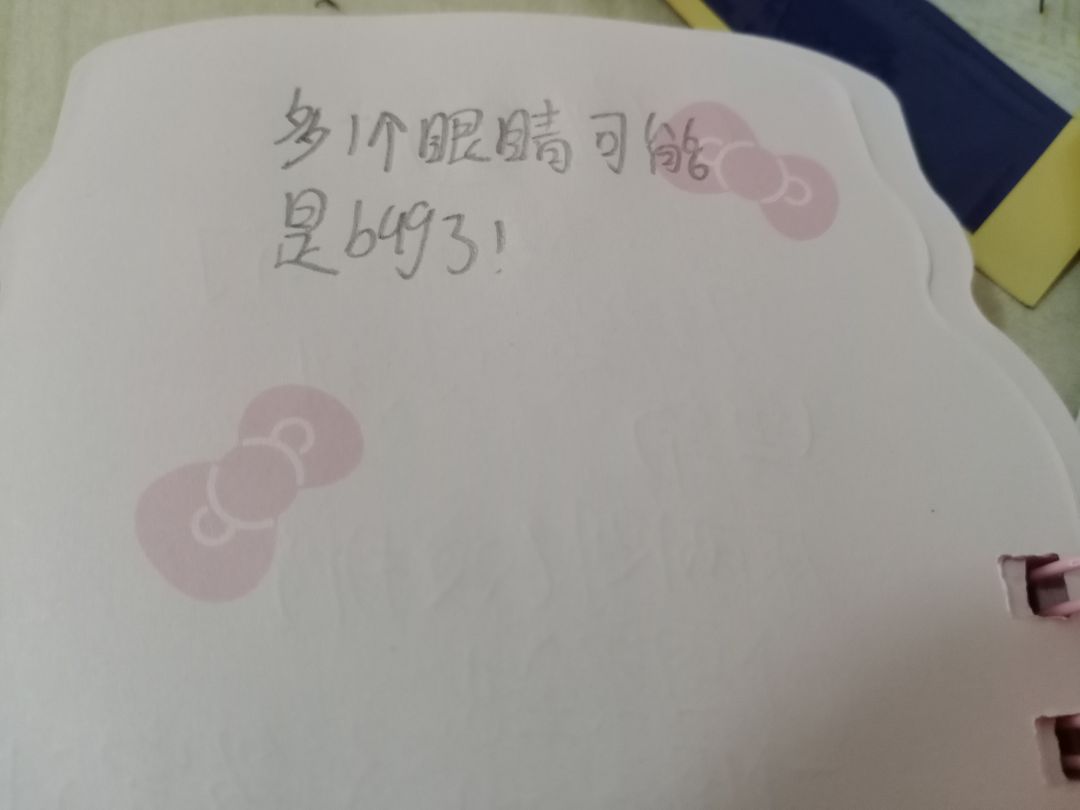 多1个眼睛可能
是6493!